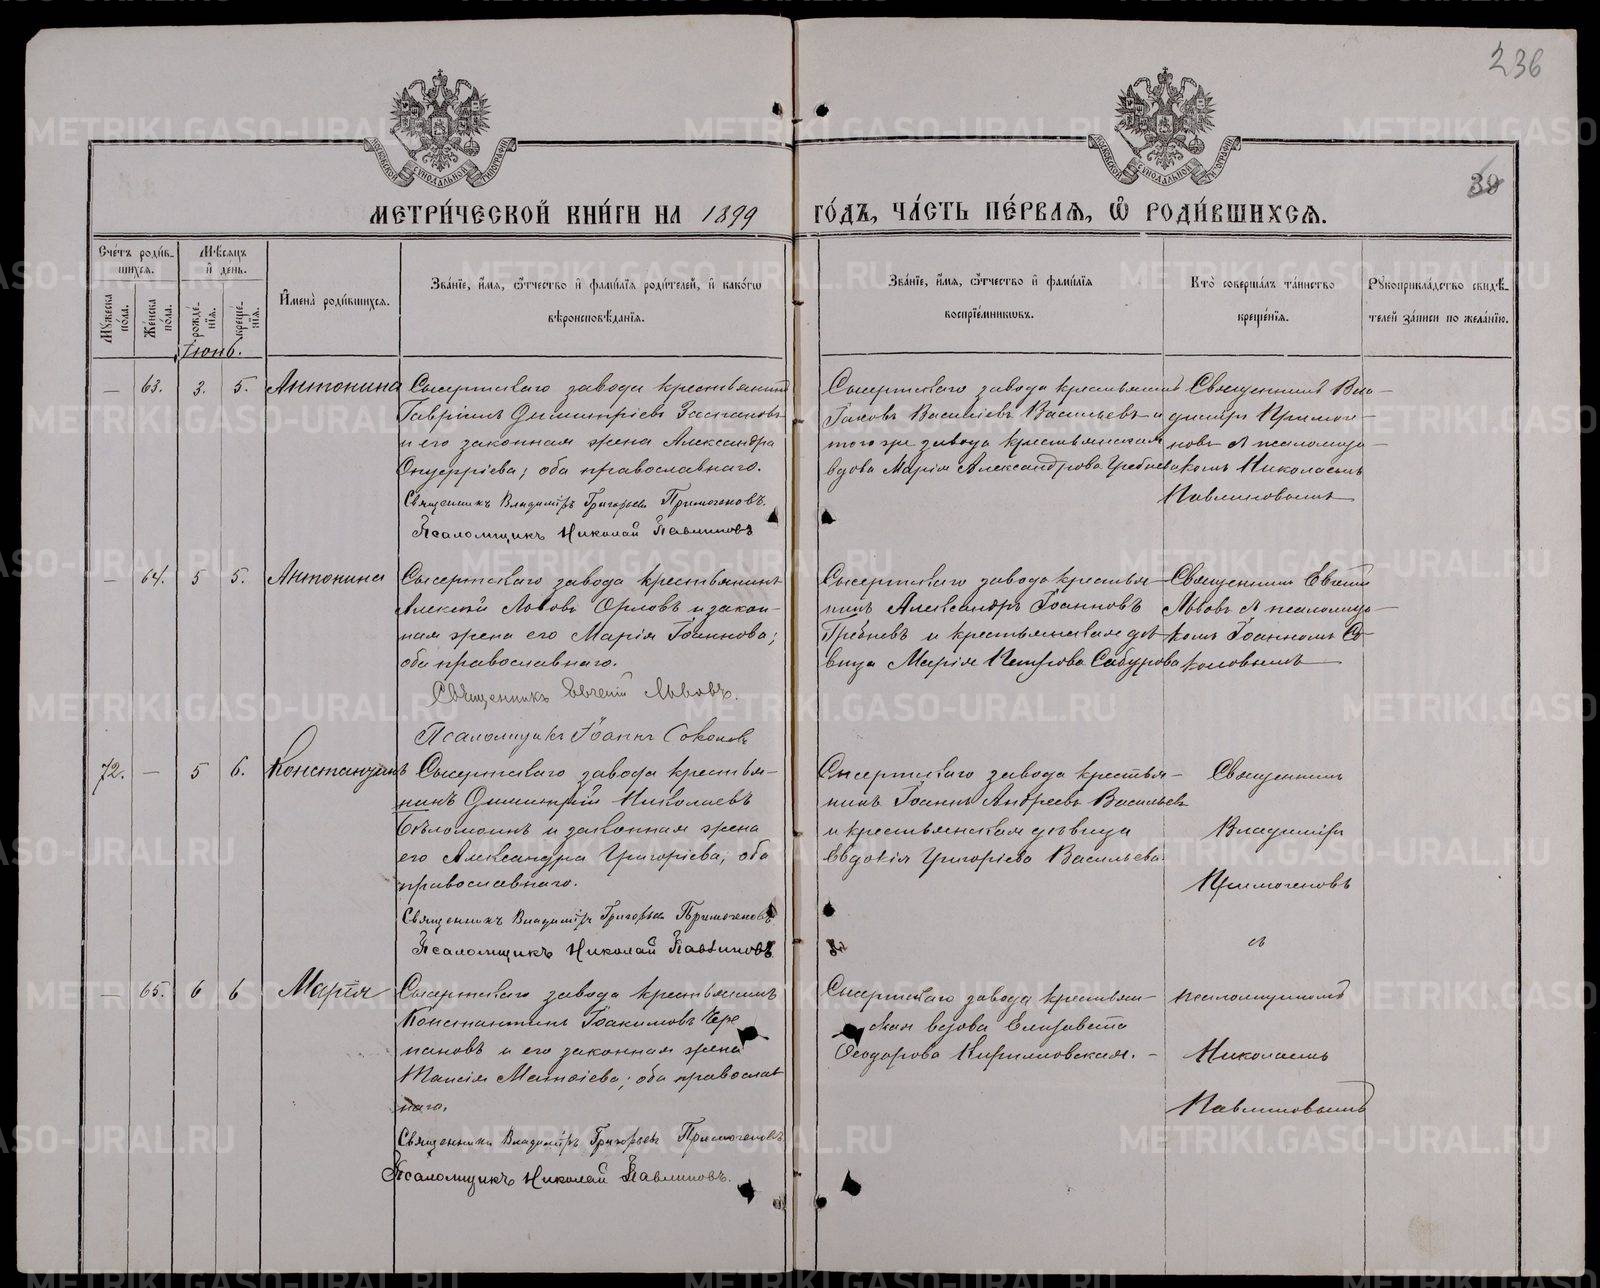 236
30
МЕТРИ́ЧЕСКОЙ КНИ́ГИ НА 1899 ГО́ДЪ, ЧА́СТЬ ПЕ́РВАЯ, Ѽ РОДИ́ВШИХСЯ.
Сче́тъ роди́в-
шихся.
Му́жеска по́ла.
Же́нска по́ла.
Мѣ́сяцъ и҆ день.
рожде́-
нїя.
креще́-
нїя.
И҆мена̀ роди́вшихся.
Зва́нїе, и҆́мя, ѻ҆́тчество и҆ фами́лїя роди́телей, и҆ како́гѡ
вѣроисповѣ́данїя.
Зва́нїе, и҆́мя, ѻ҆́тчество и҆ фами́лїя
воспрїе́мникѡвъ.
Кто̀ соверша́лъ та́инство
креще́нїя.
Рꙋкоприкла́дство свидѣ́-
телей за́писи по жела́нїю.
Іюнь.
— 63. 3. 5. Антонина
Сысертскаго завода крестьянинъ
Гавріилъ Димитріевъ
и его законная жена Александра
Онуфріева; оба православнаго.
Священникъ Владиміръ Григорьевъ Примогеновъ.
Псаломщикъ Николай Павлиновъ
Сысертскаго завода крестьянинъ
Іаковъ Василіевъ Васильевъ и
того же завода крестьянская
вдова Марія Александрова
Священникъ Вла-
димиръ Примоге-
новъ съ псаломщи-
комъ Николаемъ
Павлиновымъ
— 64. 5 5. Антонина
Сысертскаго завода крестьянинъ
Алексѣй Львовъ Орловъ и закон-
ная жена его Марія Іоаннова;
оба православнаго.
Священникъ Евгеній Львовъ.
Псаломщикъ Іоаннъ Соколовъ
Сысертскаго завода крестья-
нинъ Александръ Іоанновъ
Гребневъ и крестьянская дѣ-
вица Марія Петрова Сабурова
Священникъ Евгеній
Львовъ съ псаломщи-
комъ Іоанномъ Со-
коловымъ
72. — 5 6. Константинъ
Сысертскаго завода крестья-
нинъ Димитрій Николаевъ
Бѣломоинъ и законная жена
его Александра Григоріева, оба
православнаго.
Священникъ Владиміръ Григорьевъ Примогеновъ
Псаломщикъ Николай Павлиновъ
Сысертскаго завода крестья-
нинъ Іоаннъ Андреевъ Васильевъ
и крестьянская дѣвица
Евдокія Григоріева Васильева
Священникъ
Владиміръ
Примогеновъ
съ
псаломщикомъ
Николаемъ
Павлиновымъ
— 65. 6 6 Марія
Сысертскаго завода крестьянинъ
Константинъ Іоакимовъ Чере
пановъ и его законная жена
Таисія Матѳіева; оба православ
наго.
Священникъ Владиміръ Григорьевъ Примогеновъ
Псаломщикъ Николай Павлиновъ.
Сысертскаго завода крестьян-
ская вдова Елизавета
Ѳеодорова Кирилловская. —
METRIKI.GASO-URAL.RU